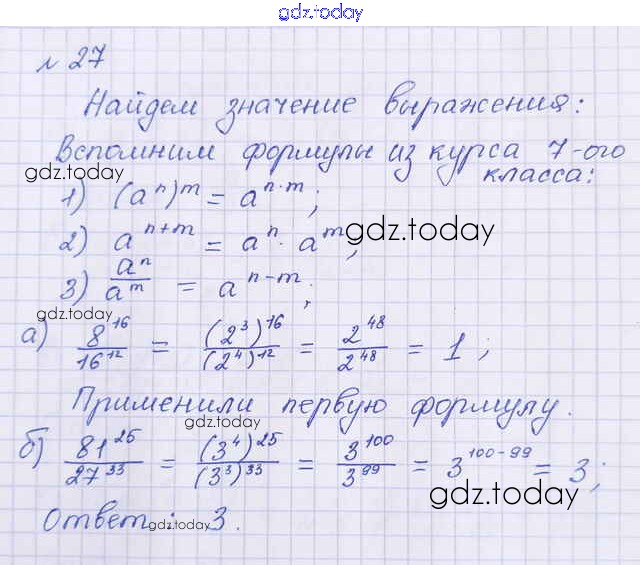 gdz.today
№ 27
Найдем значение выражения:
Вспомним формулы из курса 7-ого
класса:
gdz.today
1) (aⁿ)ᵐ = aⁿ·ᵐ;
2) aⁿ⁺ᵐ = aⁿ · aᵐ;
gdz.today
3) aⁿ/aᵐ = aⁿ⁻ᵐ;
gdz.today
а) 8¹⁶/16¹² = (2³)¹⁶/(2⁴)¹² = 2⁴⁸/2⁴⁸ = 1;
Применили первую формулу.
gdz.today
б) 81²⁵/27³³ = (3⁴)²⁵/(3³)³³ = 3¹⁰⁰/3⁹⁹ = 3¹⁰⁰⁻⁹⁹ = 3;
gdz.today
Ответ: 3.
gdz.today